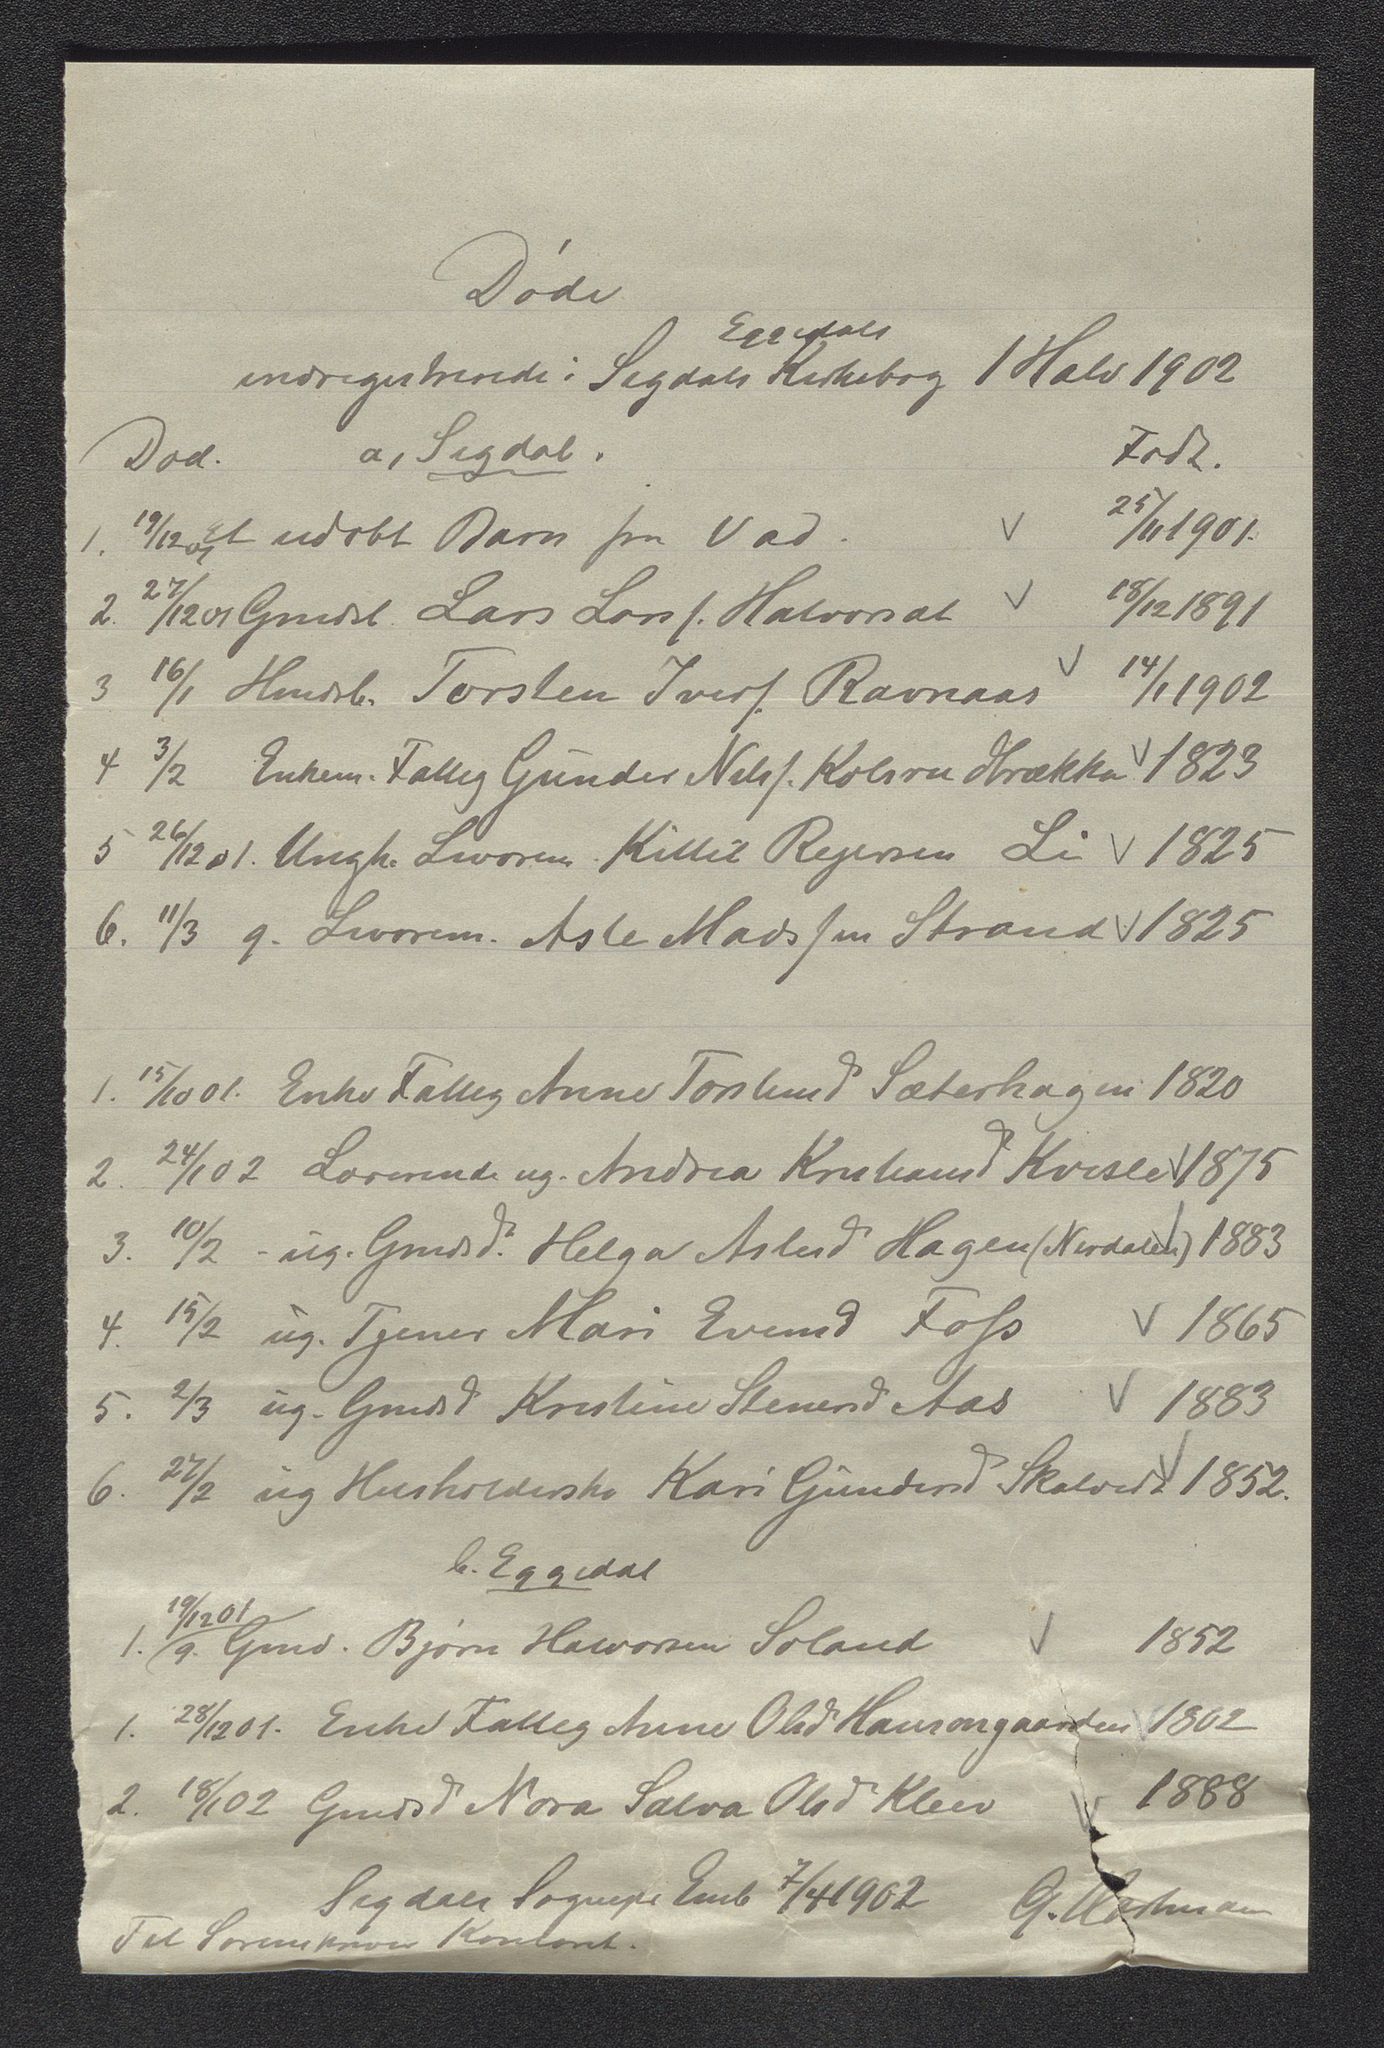 Døde
Eggedals
indregistrerede i Sigdals Kirkebog 1 Halv 1902
Død. a, Sigdal. Født.
1. 19/12 01 Et udøbt Barn fra Vad. V 25/11 1901.
2. 27/12 01 Gmdsb. Lars Larsf. Halvorsat V 18/12 1891
3 16/1 Hmdsb. Torsten Iversf. Ravnaas V 14/1 1902
4 3/2 Enkem. Fattig Gunder Nilsf. Kolsrudbrækka V 1823
5 26/12 01. Ungk. Livørem. Kittil Rejersen Li V 1825
6. 11/3 g. Livørem. Asle Madsfen Strand V 1825
1. 15/10 01. Enke Fattig Anne Torstensd Sæterhagen 1820
2. 24/1 02 Lærerinde ug. Andrea Kristiansd Kvisle V 1875
3. 10/2 - ug. Gmdsd. Helga Aslesd Hagen (Nerdalen) V 1883
4. 15/2 ug. Tjener Mari Evensd Fofs V 1865
5. 2/3 ug. Gmdsd Kristine Stenersd Aas V 1883
6. 27/2 ug Husholderske Kari Gundersd Skalvedt V 1852.
b. Eggedal
19/12 01
1. g. Gmd. Bjørn Halvorsen Soland V 1852
1. 28/12 01. Enke Fattig Anne Olsd Hansongaarden V 1802
2. 18/1 02 Gmdsd Nora Salva Olsd Kleiv V 1888
Sigdals Sognepr. Emb 7/4 1902 G.
Til Sorenskriver Kontoret.